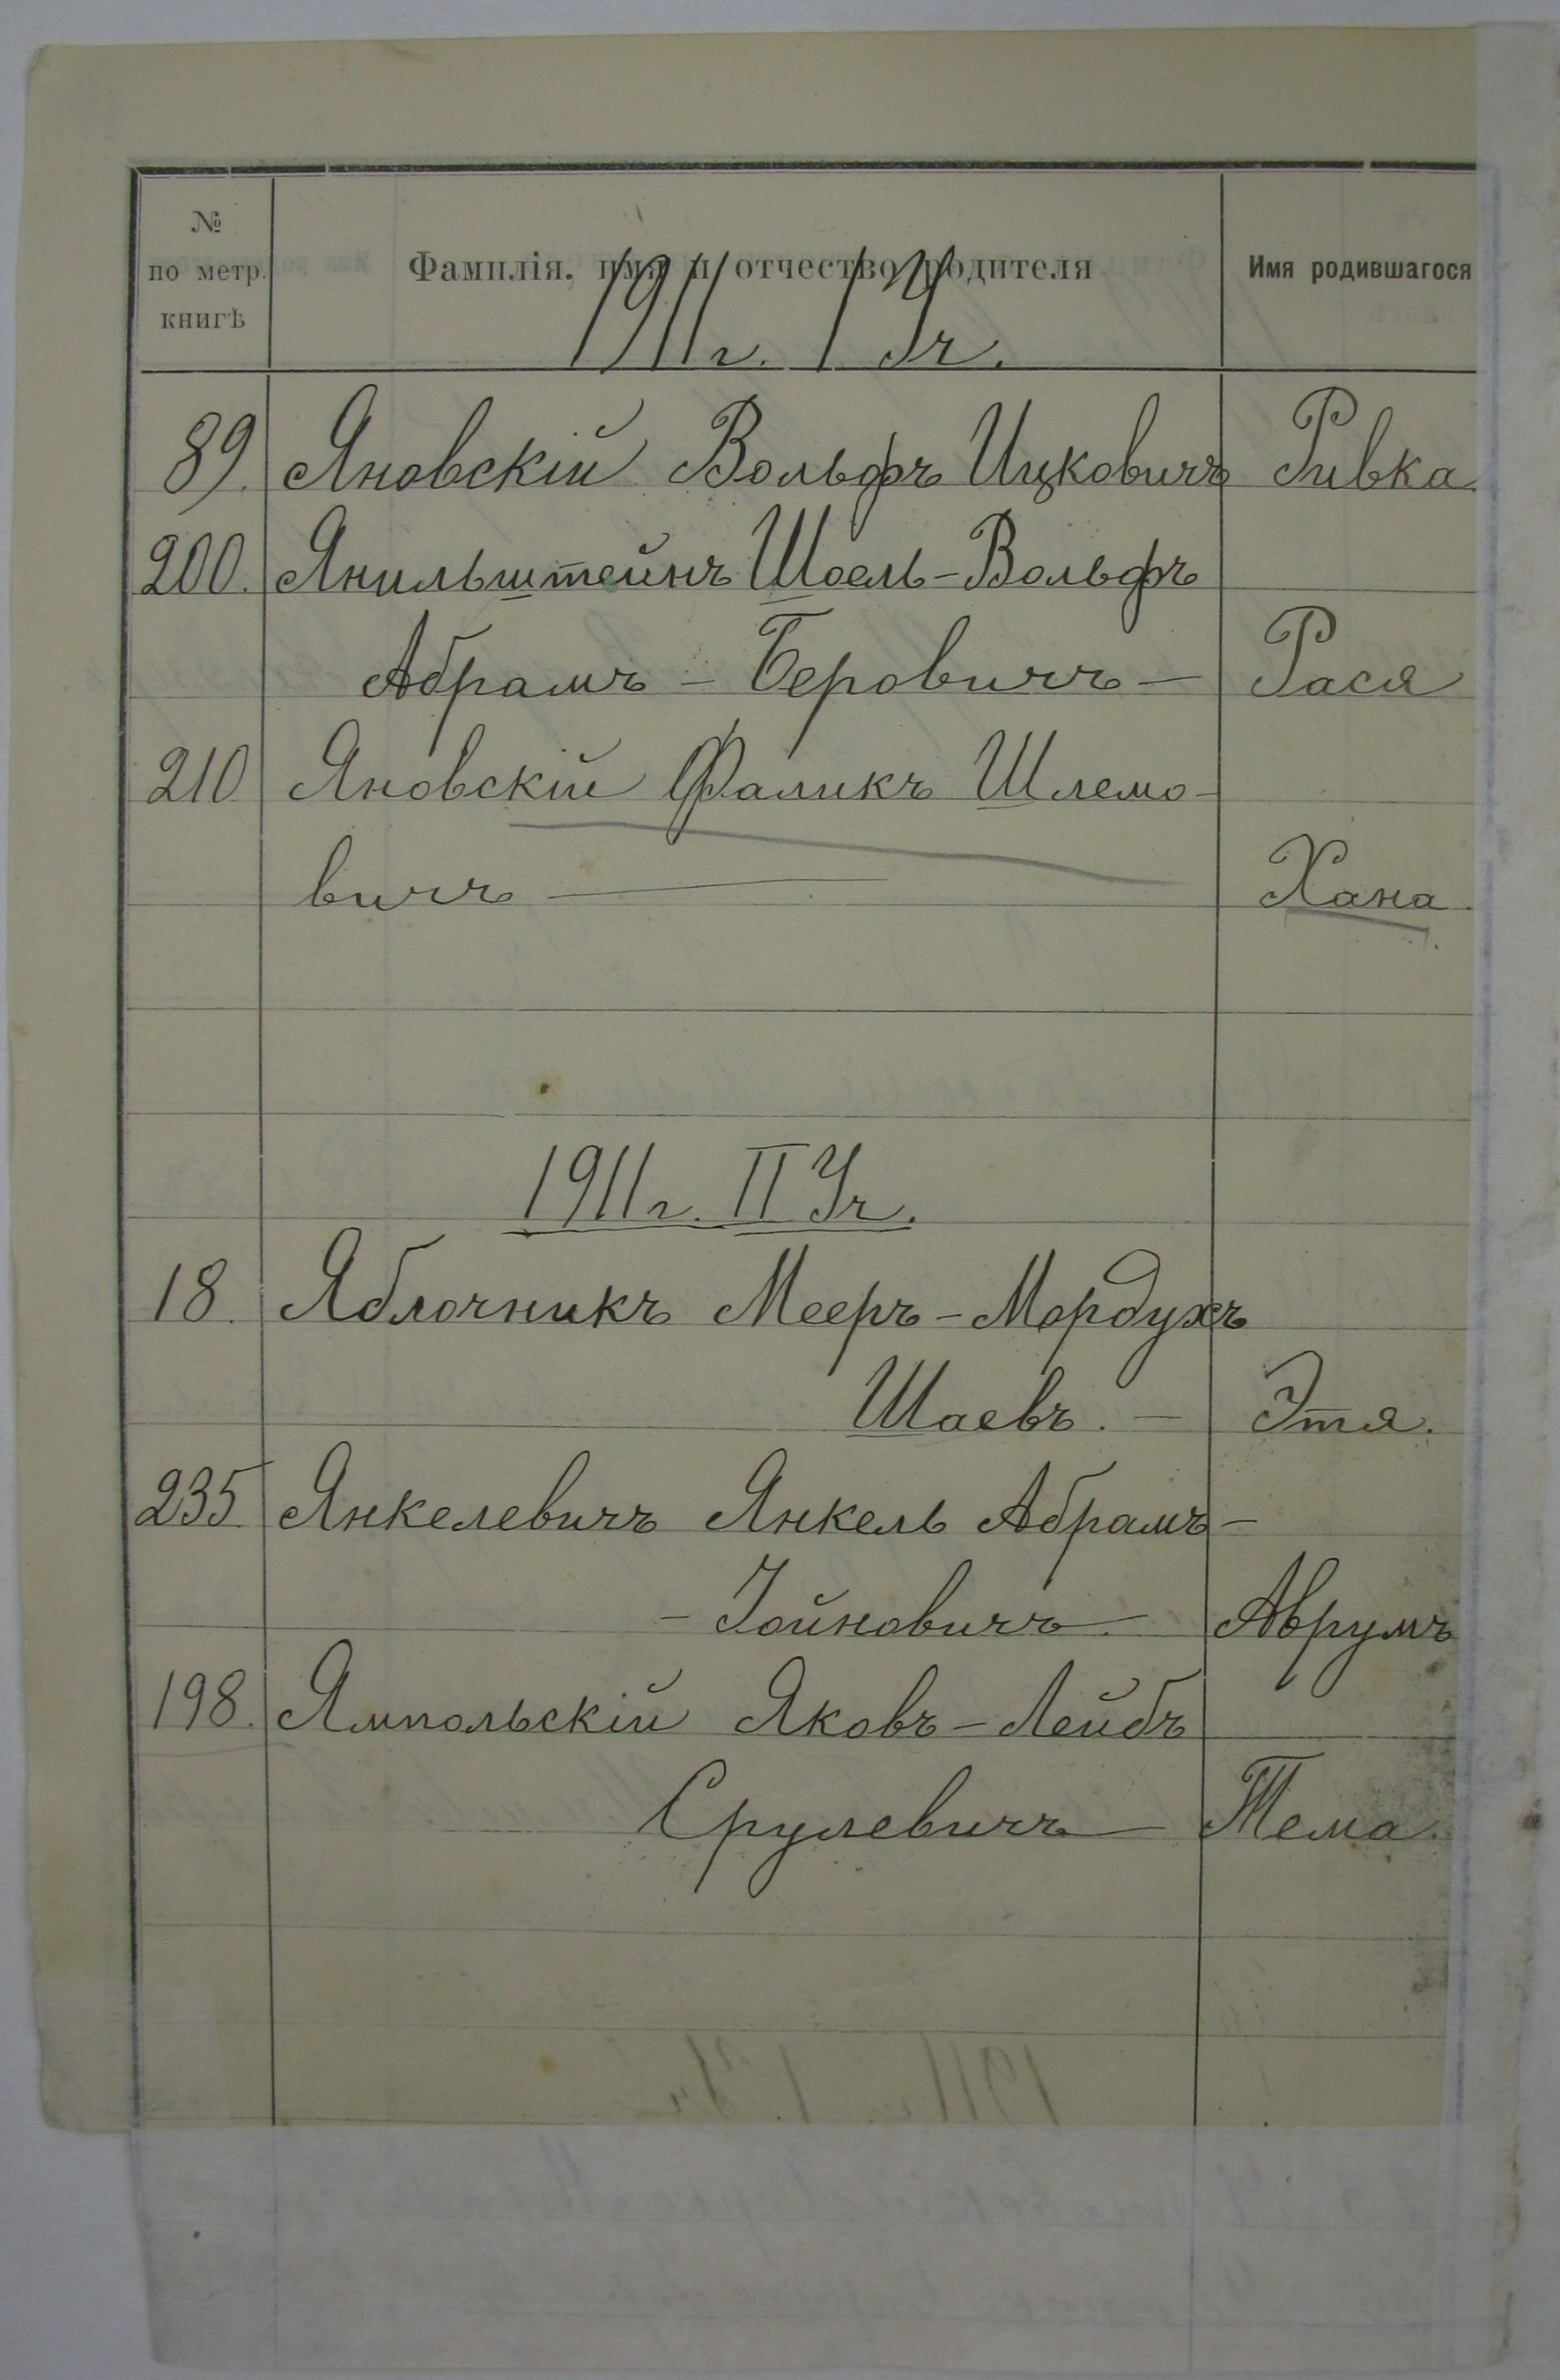 №
по метр.
книгѣ
Фамилія, имя и отчество родителя
Имя родившагося
1911 г. I Уч.
89. Яновскій Вольфъ Ицковичъ Ривка.
200. Янильштейнъ Шоель-Вольфъ
Абрамъ - Беровичъ - Рася
210 Яновскій Фаликъ Шлемо-
вичъ — Хана.
1911 г. II Уч.
18. Яблочникъ Мееръ-Мордухъ
Шаевъ. - Этя.
235 Янкелевичъ Янкель Абрамъ-
- Іойновичъ - Аврумъ
198. Ямпольскій Яковъ-Лейбъ
Срулевичъ - Тема.